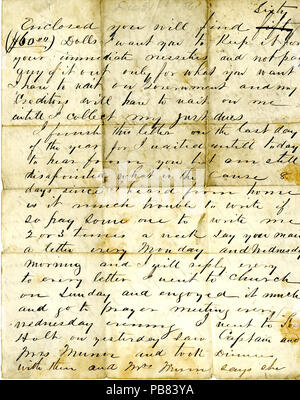 Sixty
Enclosed you will find fifty
($60.00) Dolls I want you to keep it for
your immediate nessities and not pay
any of it out only for what you want
I have to wait on Government and my
Creditors will have to wait on me
untill I collect my just dues
I finish this letter on the last day
of the year for I waited untill today
to hear from you but am still
disapointed what is the Cause 8
days since I heard from home
is it much trouble to write if
so pay some one to write me
2 or 3 times a week say you mail
a letter every Monday and Wednesday
morning and I will reply
to every letter I went to church
on Sunday and engoyed it much
and go to prayer meeting every
wednesday evening I went to
Holt on yesterday saw Captain and
Mrs Munn and took Dinner
with them and Mrs Munn says she
alamy
Image ID: PB83YA
www.alamy.com